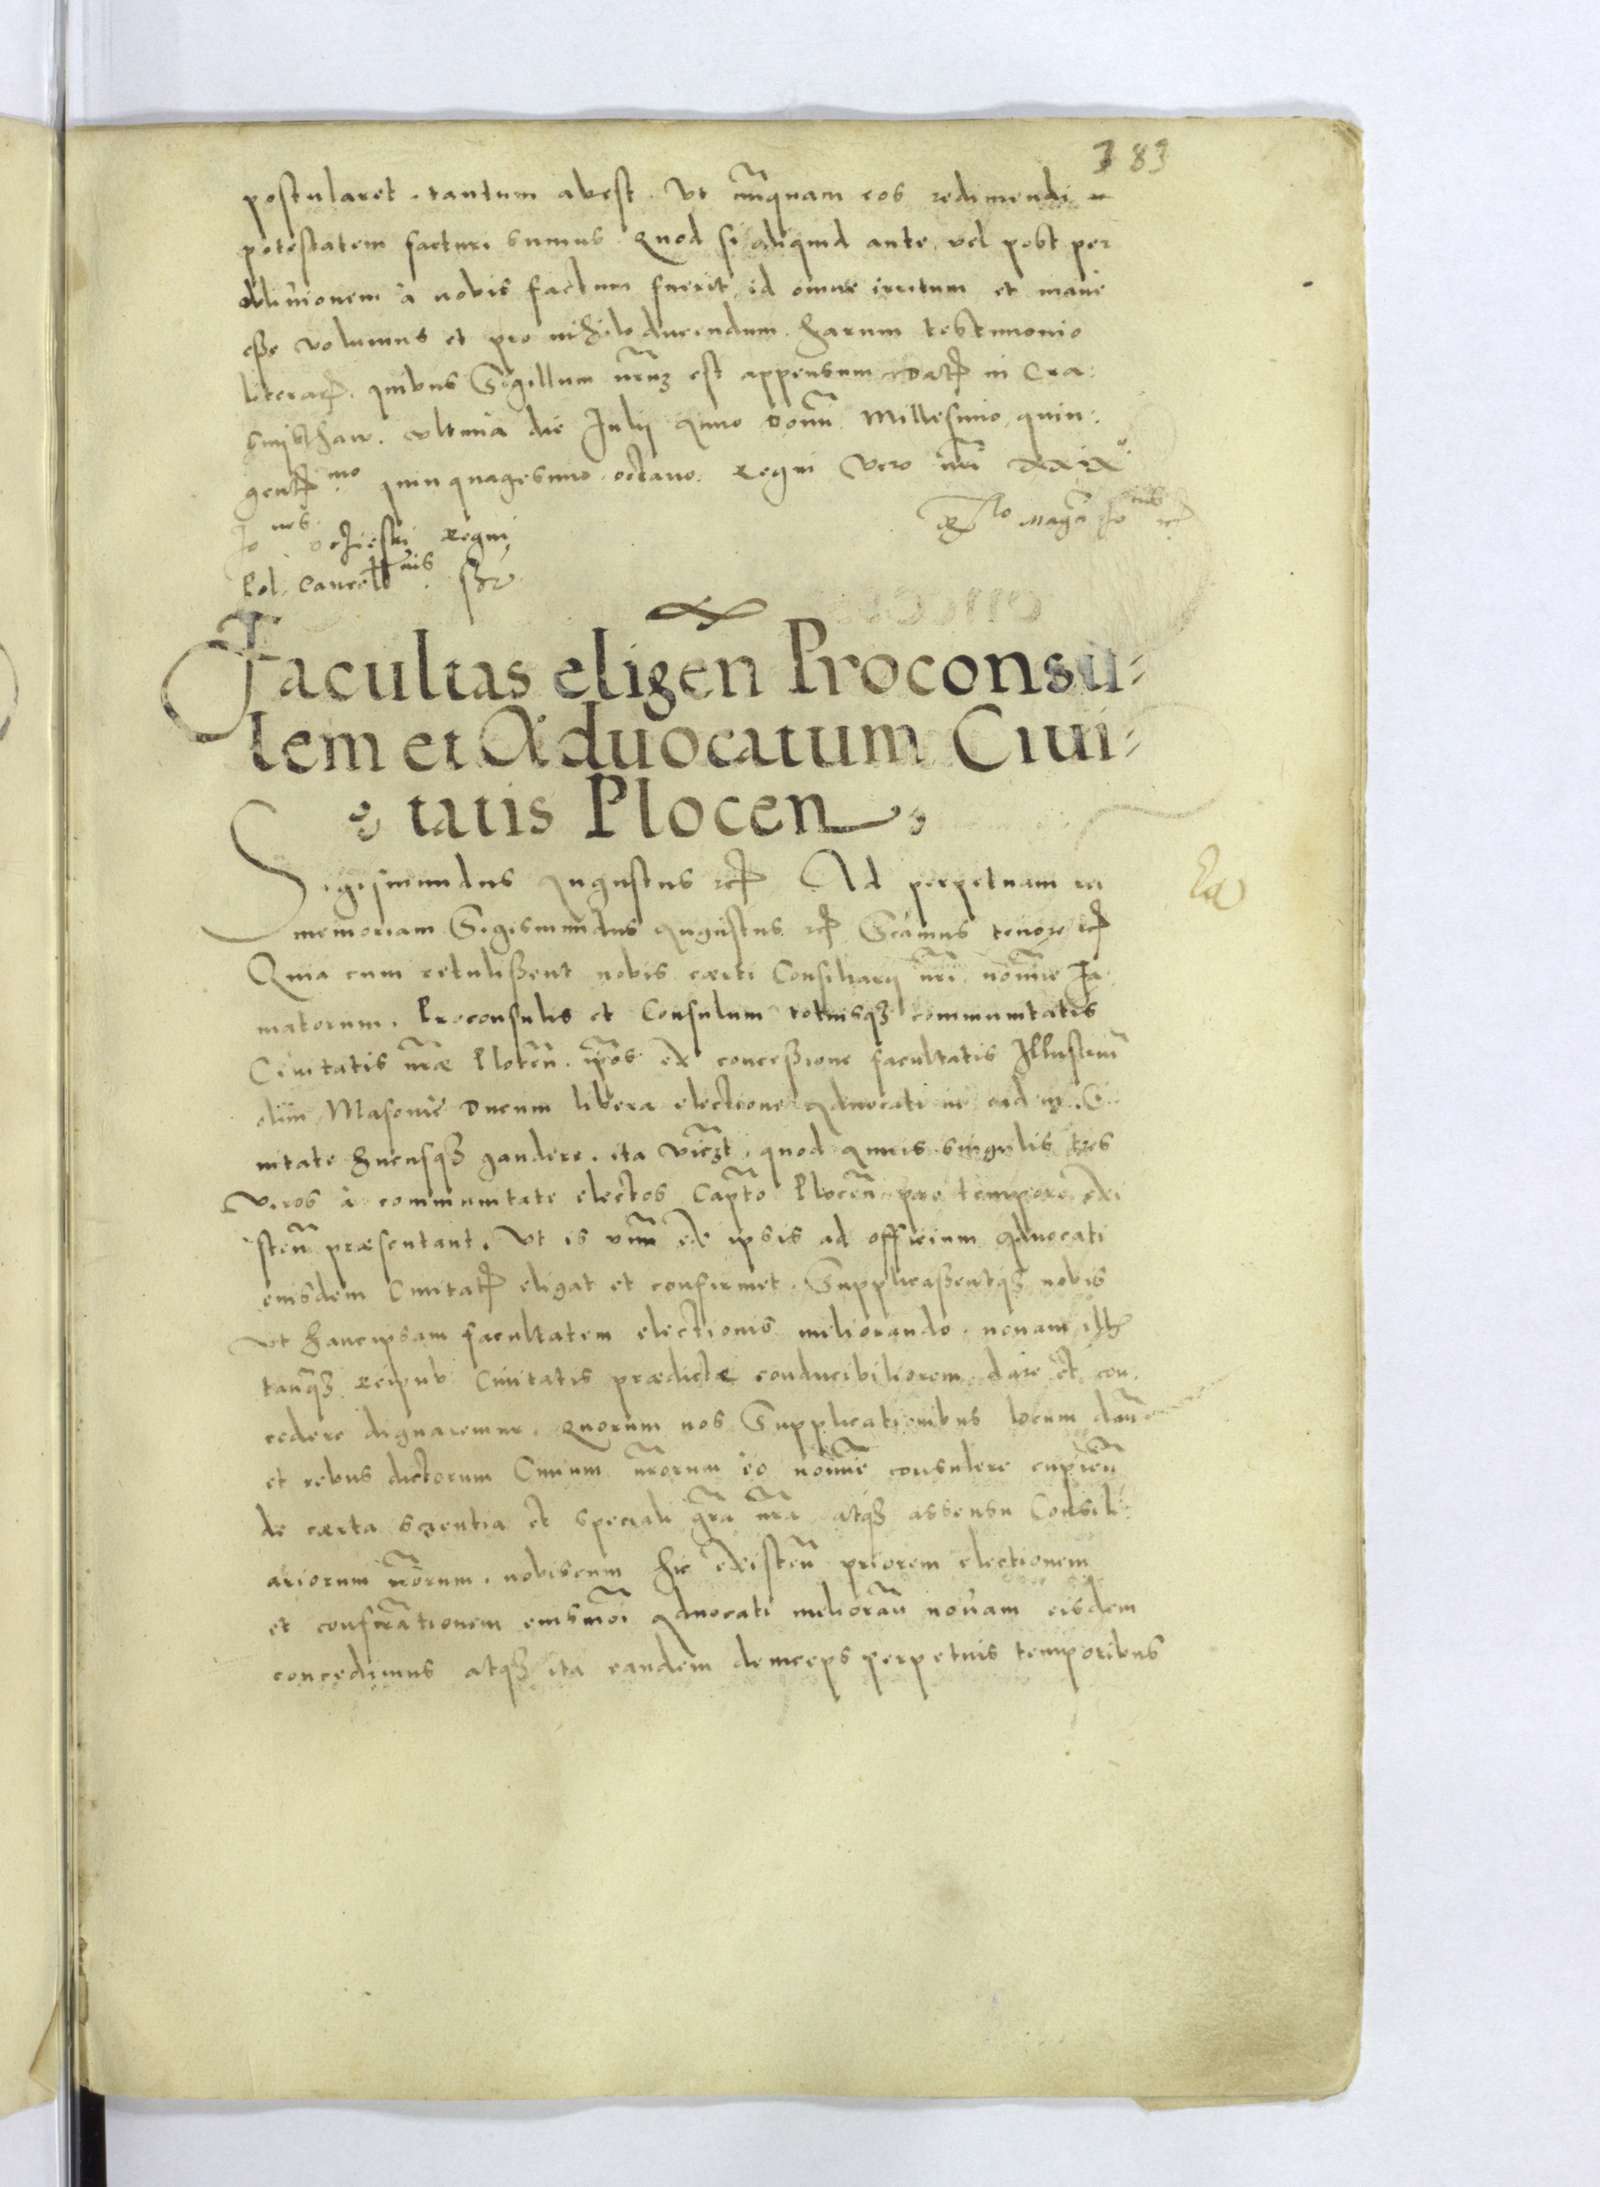 383
postularet. tantum abest. Ut nūquam eos redimendi
potestatem facturi sumus. Quod si aliquid ante, vel post per
obliuionem à nobis factum fuerit, id omne irritum et inane
esse volumus et pro nihilo ducendum. Harum testimonio
literaꝝ. quibus Sigillum nr̃uʒ est appensum. Datꝭ in Cra-
smisthaw. ultima die Julij Anno Domi Millesimo quin-
gentꝭmo quinquagesimo octauo. Regni vero nr̃i XXIXo.
Jones Oczieski Regni
Pol. Cancellrius. sst
Rlo Magci Jo
Facultas eligen Proconsu-
lem et Aduocatum Ciui-
tatis Plocen
Sigismundus Augustus etc Ad perpetuam rei
memoriam Sigismundus Augustus etc Scãmus tenore etc
Quia cum retulissent nobis cærti Consiliarij nr̃i noīne Fa-
matorum. Proconsulis et Consulum totiusqꝫ communitatis
Ciuitatis nr̃æ Plocēn. ip̃os ex concessione facultatis Illustriũ
olim Masouie Ducum libera electione Aduocati in ead m Ci-
uitate hucusqꝫ gaudere. ita vicꝫt. quod Annis singulis tres
viros à communitate electos Capt̃o Plocēn pro tempore exi-
stēn præsentant. Ut is unũ ex ipsis ad officium Aduocati
eiusdem Ciuitatꝭ eligat et confirmet. Supplicassentqꝫ nobis
ut hanc ipsam facultatem electionis meliorando. nouam illis
tanqꝫ Reipub Ciuitatis prædictæ conducibiliorem dare et con-
cedere dignaremur. Quorum nos Supplicationibus locum dañ
et rebus dictorum Ciuium nr̃orum eo noīne consulere cupien̄
de cærta scientia et speciali gr̃a nr̃a atqꝫ assensu Consili-
ariorum nr̃orum. nobiscum hic existēn priorem electionem
et confir̃ationem eiusmõi Aduocati meliorañ nouam eisdem
concedimus atqꝫ ita eandem deinceps perpetuis temporibus